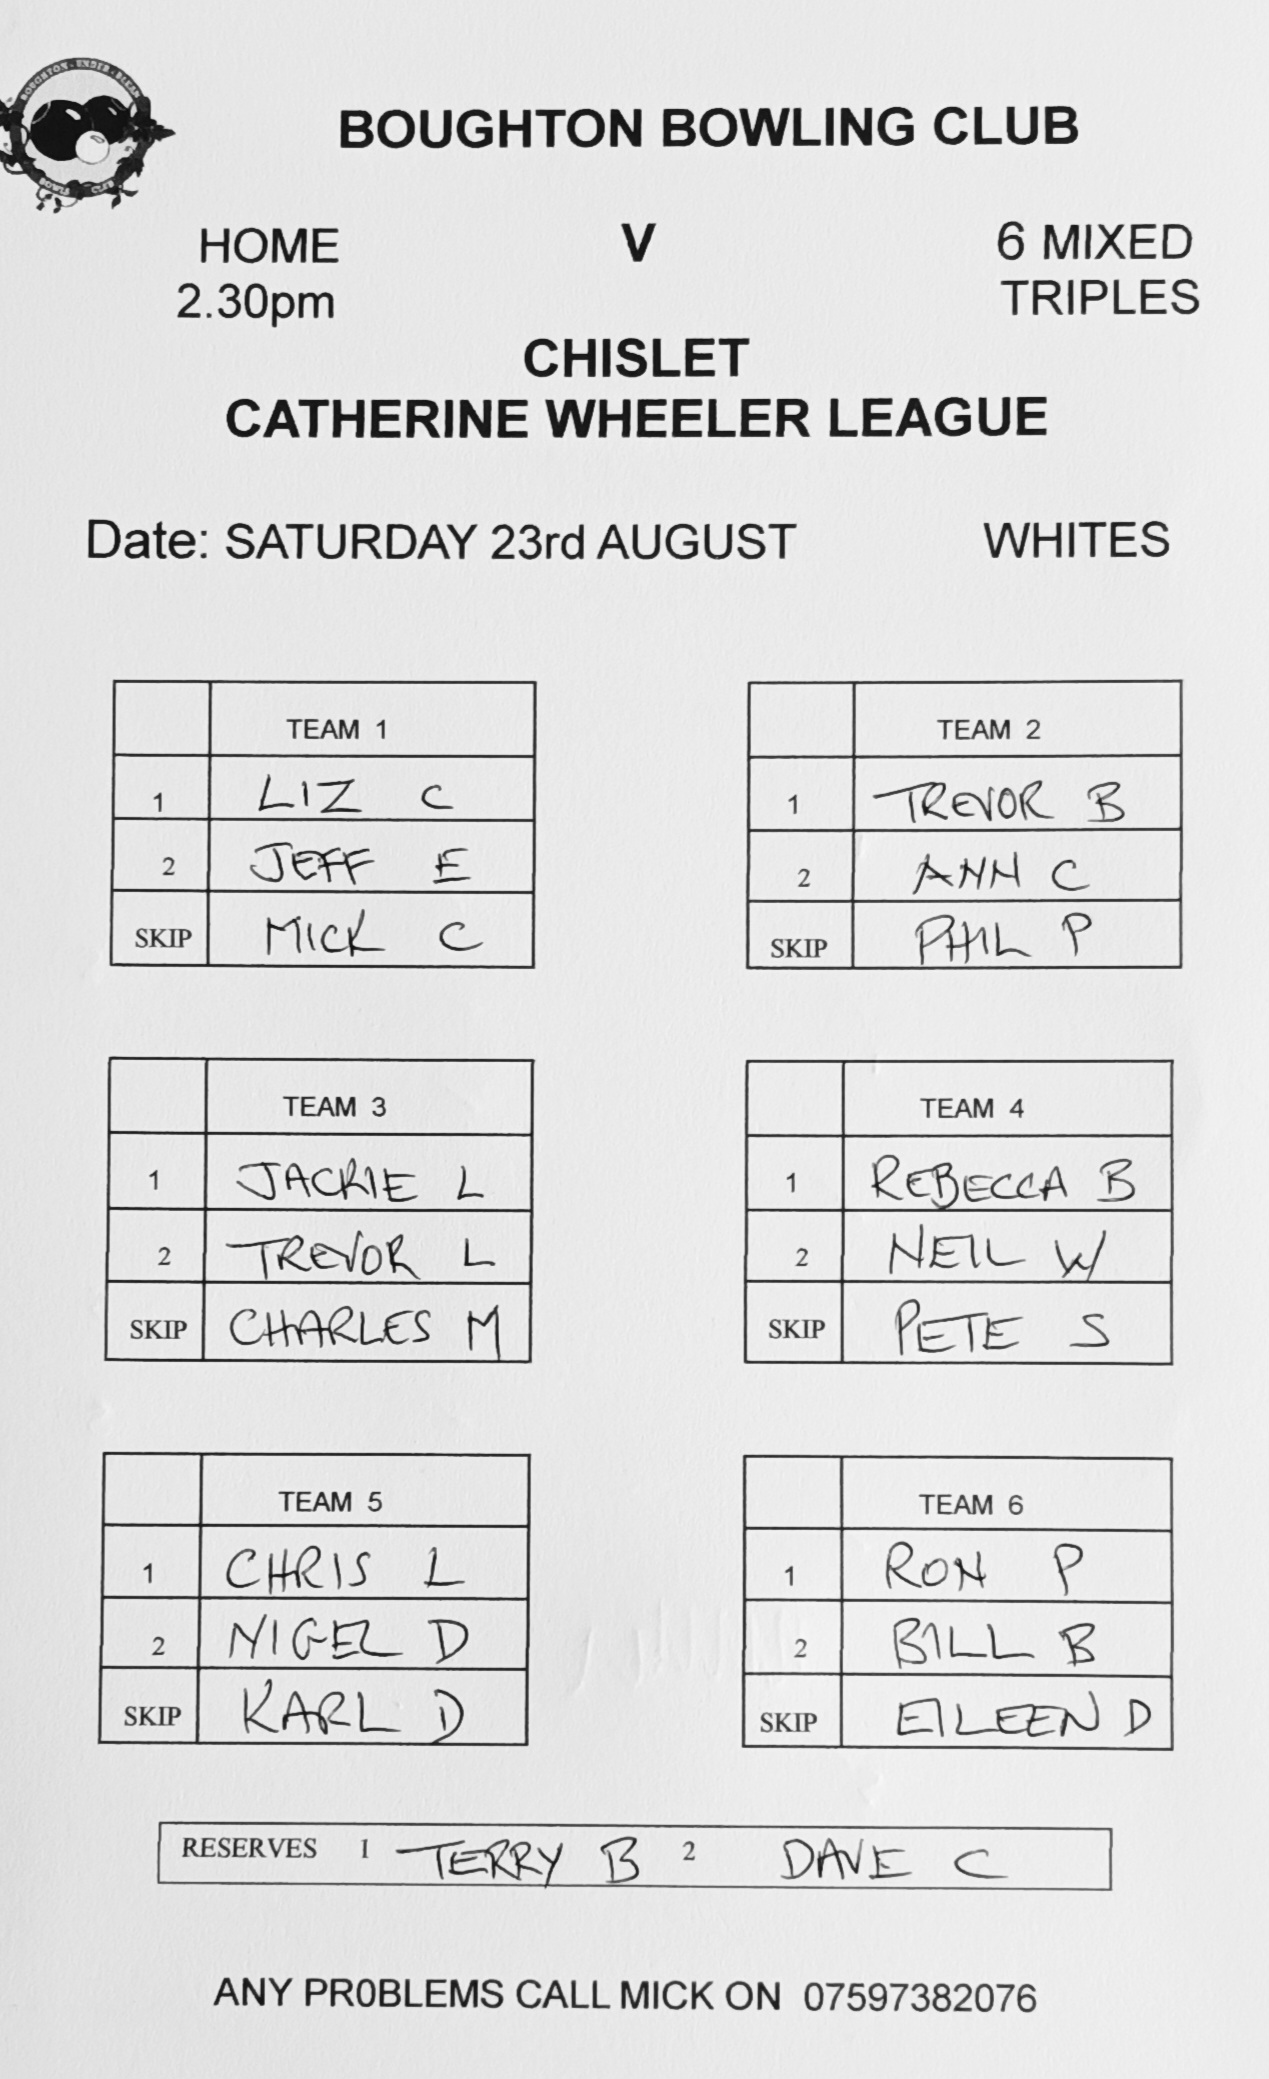 BOUGHTON · UNDER · BLEAN
BOWLS CLUB
BOUGHTON BOWLING CLUB
HOME V 6 MIXED
2.30pm TRIPLES
CHISLET
CATHERINE WHEELER LEAGUE
Date: SATURDAY 23rd AUGUST WHITES
TEAM 1
1 LIZ C
2 JEFF E
SKIP MICK C
TEAM 2
1 TREVOR B
2 ANN C
SKIP PHIL P
TEAM 3
1 JACKIE L
2 TREVOR L
SKIP CHARLES M
TEAM 4
1 REBECCA B
2 NEIL W
SKIP PETE S
TEAM 5
1 CHRIS L
2 NIGEL D
SKIP KARL D
TEAM 6
1 RON P
2 BILL B
SKIP EILEEN D
RESERVES 1 TERRY B 2 DAVE C
ANY PR0BLEMS CALL MICK ON 07597382076